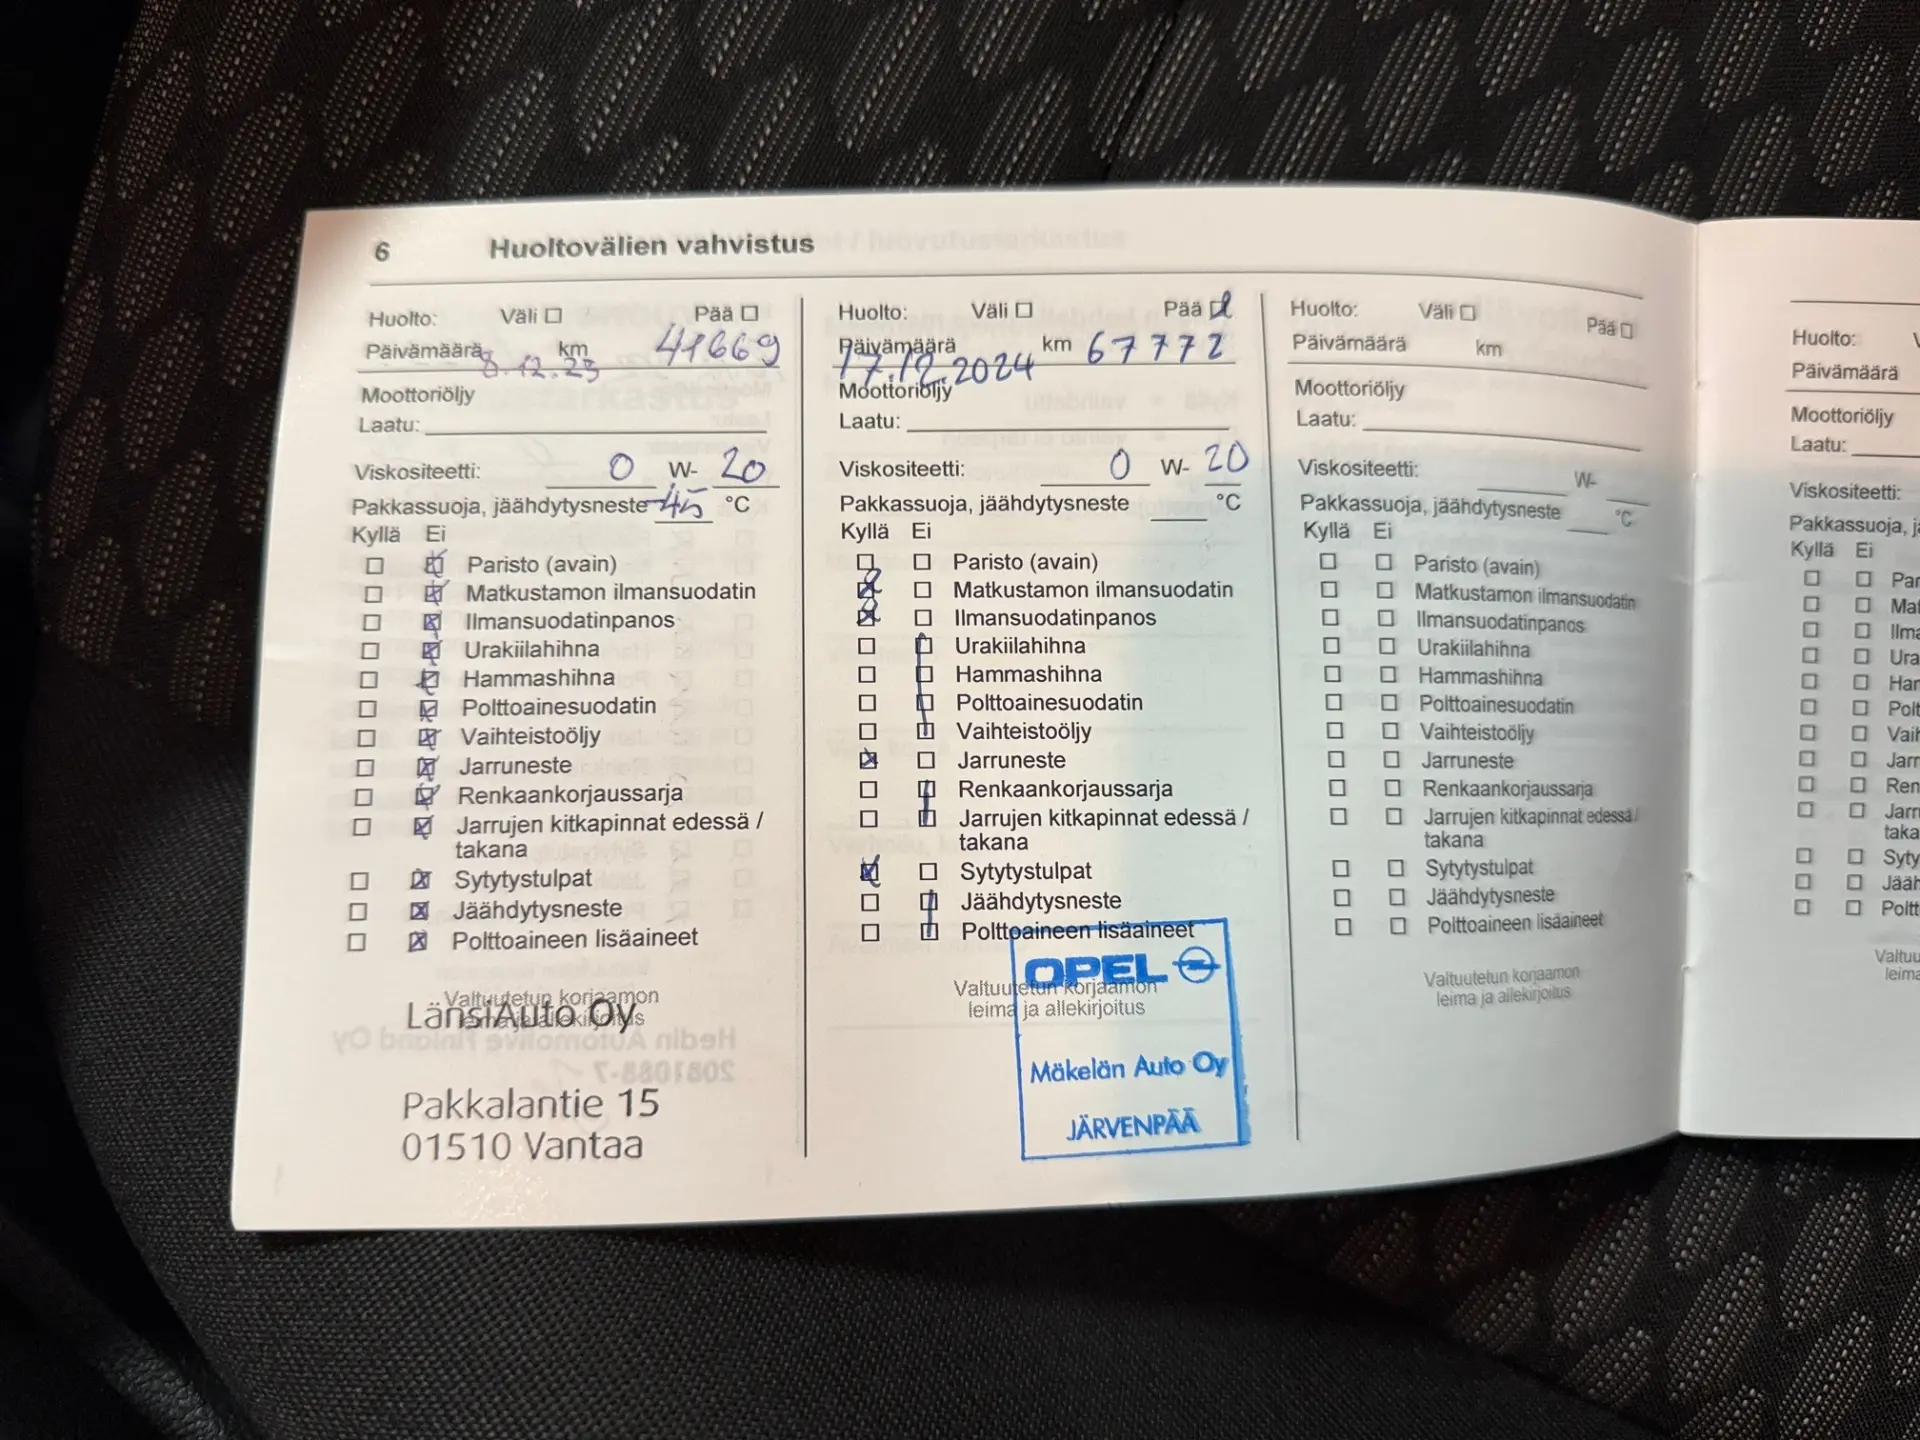 6 Huoltovälien vahvistus
Huolto: Väli ☐ Pää ☐
Päivämäärä 8.12.23 km 41669
Moottoriöljy
Laatu:
Viskositeetti: 0 W- 20
Pakkassuoja, jäähdytysneste -45 °C
Kyllä Ei
Paristo (avain)
Matkustamon ilmansuodatin
Ilmansuodatinpanos
Urakiilahihna
Hammashihna
Polttoainesuodatin
Vaihteistoöljy
Jarruneste
Renkaankorjaussarja
Jarrujen kitkapinnat edessä /
takana
Sytytystulpat
Jäähdytysneste
Polttoaineen lisäaineet
Valtuutetun korjaamon
leima ja allekirjoitus
LänsiAuto Oy
Pakkalantie 15
01510 Vantaa
Hedin Automotive Finland Oy
2081088-7
Huolto: Väli ☐ Pää ☒
Päivämäärä 17.12.2024 km 67772
Moottoriöljy
Laatu:
Viskositeetti: 0 W- 20
Pakkassuoja, jäähdytysneste °C
Kyllä Ei
Paristo (avain)
Matkustamon ilmansuodatin
Ilmansuodatinpanos
Urakiilahihna
Hammashihna
Polttoainesuodatin
Vaihteistoöljy
Jarruneste
Renkaankorjaussarja
Jarrujen kitkapinnat edessä /
takana
Sytytystulpat
Jäähdytysneste
Polttoaineen lisäaineet
Valtuutetun korjaamon
leima ja allekirjoitus
OPEL
Mäkelän Auto Oy
JÄRVENPÄÄ
Huolto: Väli ☐ Pää ☐
Päivämäärä km
Moottoriöljy
Laatu:
Viskositeetti: W-
Pakkassuoja, jäähdytysneste °C
Kyllä Ei
Paristo (avain)
Matkustamon ilmansuodatin
Ilmansuodatinpanos
Urakiilahihna
Hammashihna
Polttoainesuodatin
Vaihteistoöljy
Jarruneste
Renkaankorjaussarja
Jarrujen kitkapinnat edessä /
takana
Sytytystulpat
Jäähdytysneste
Polttoaineen lisäaineet
Valtuutetun korjaamon
leima ja allekirjoitus
Huolto:
Päivämäärä
Moottoriöljy
Laatu:
Viskositeetti:
Pakkassuoja, jä
Kyllä Ei
Par
Mat
Ilma
Ura
Har
Polt
Vaih
Jarr
Ren
Jarr
taka
Syty
Jääh
Polt
Valtuu
leima